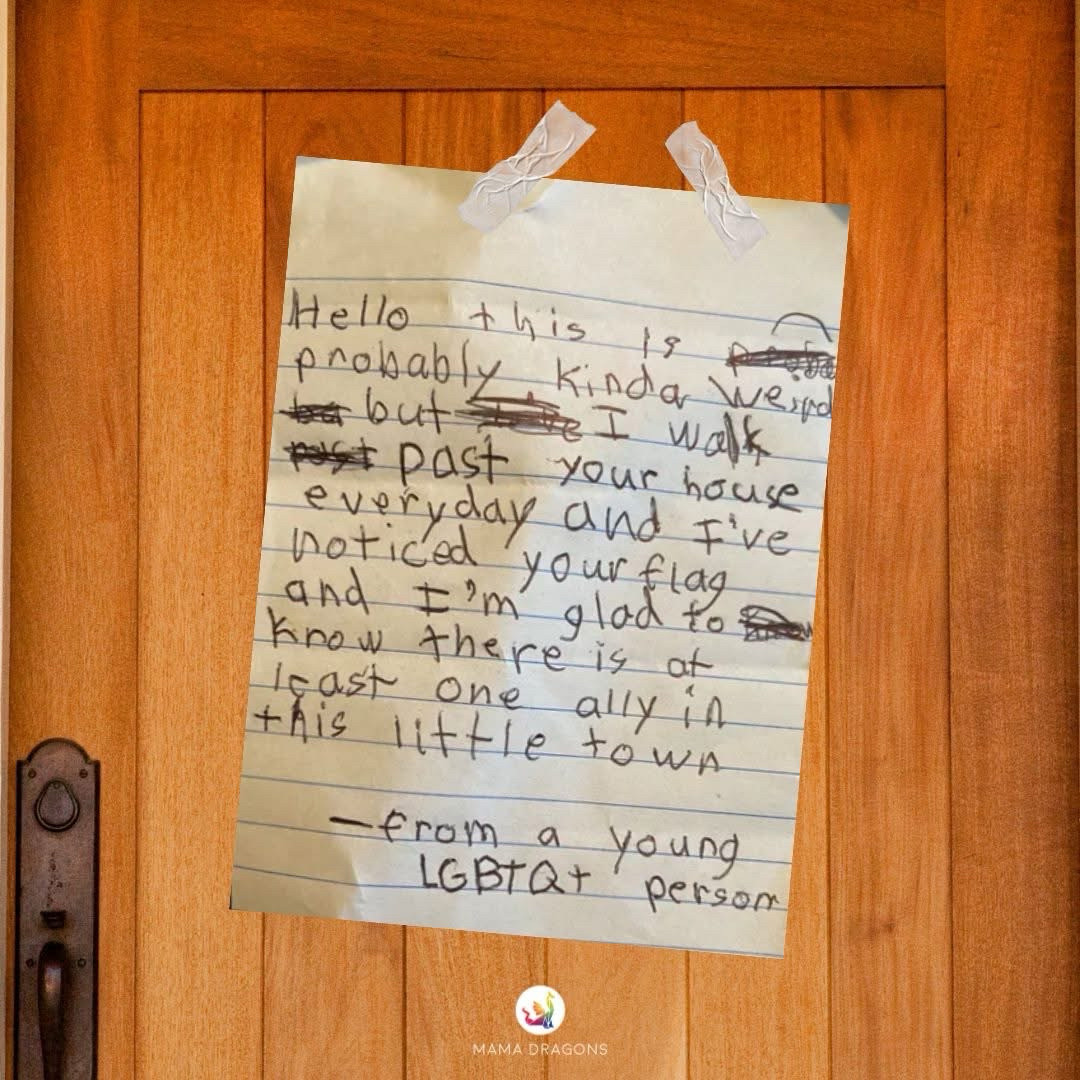 Hello this is
probably kinda weird
but I walk
past your house
everyday and I've
noticed your flag
and I'm glad to
know there is at
least one ally in
this little town
—from a young
LGBTQ+ person
MAMA DRAGONS